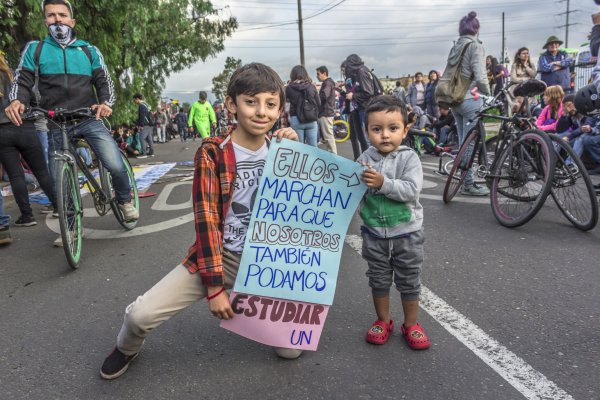 ELLOS →
MARCHAN
PARA QUE
NOSOTROS
TAMBIÉN
PODAMOS
ESTUDIAR
UN